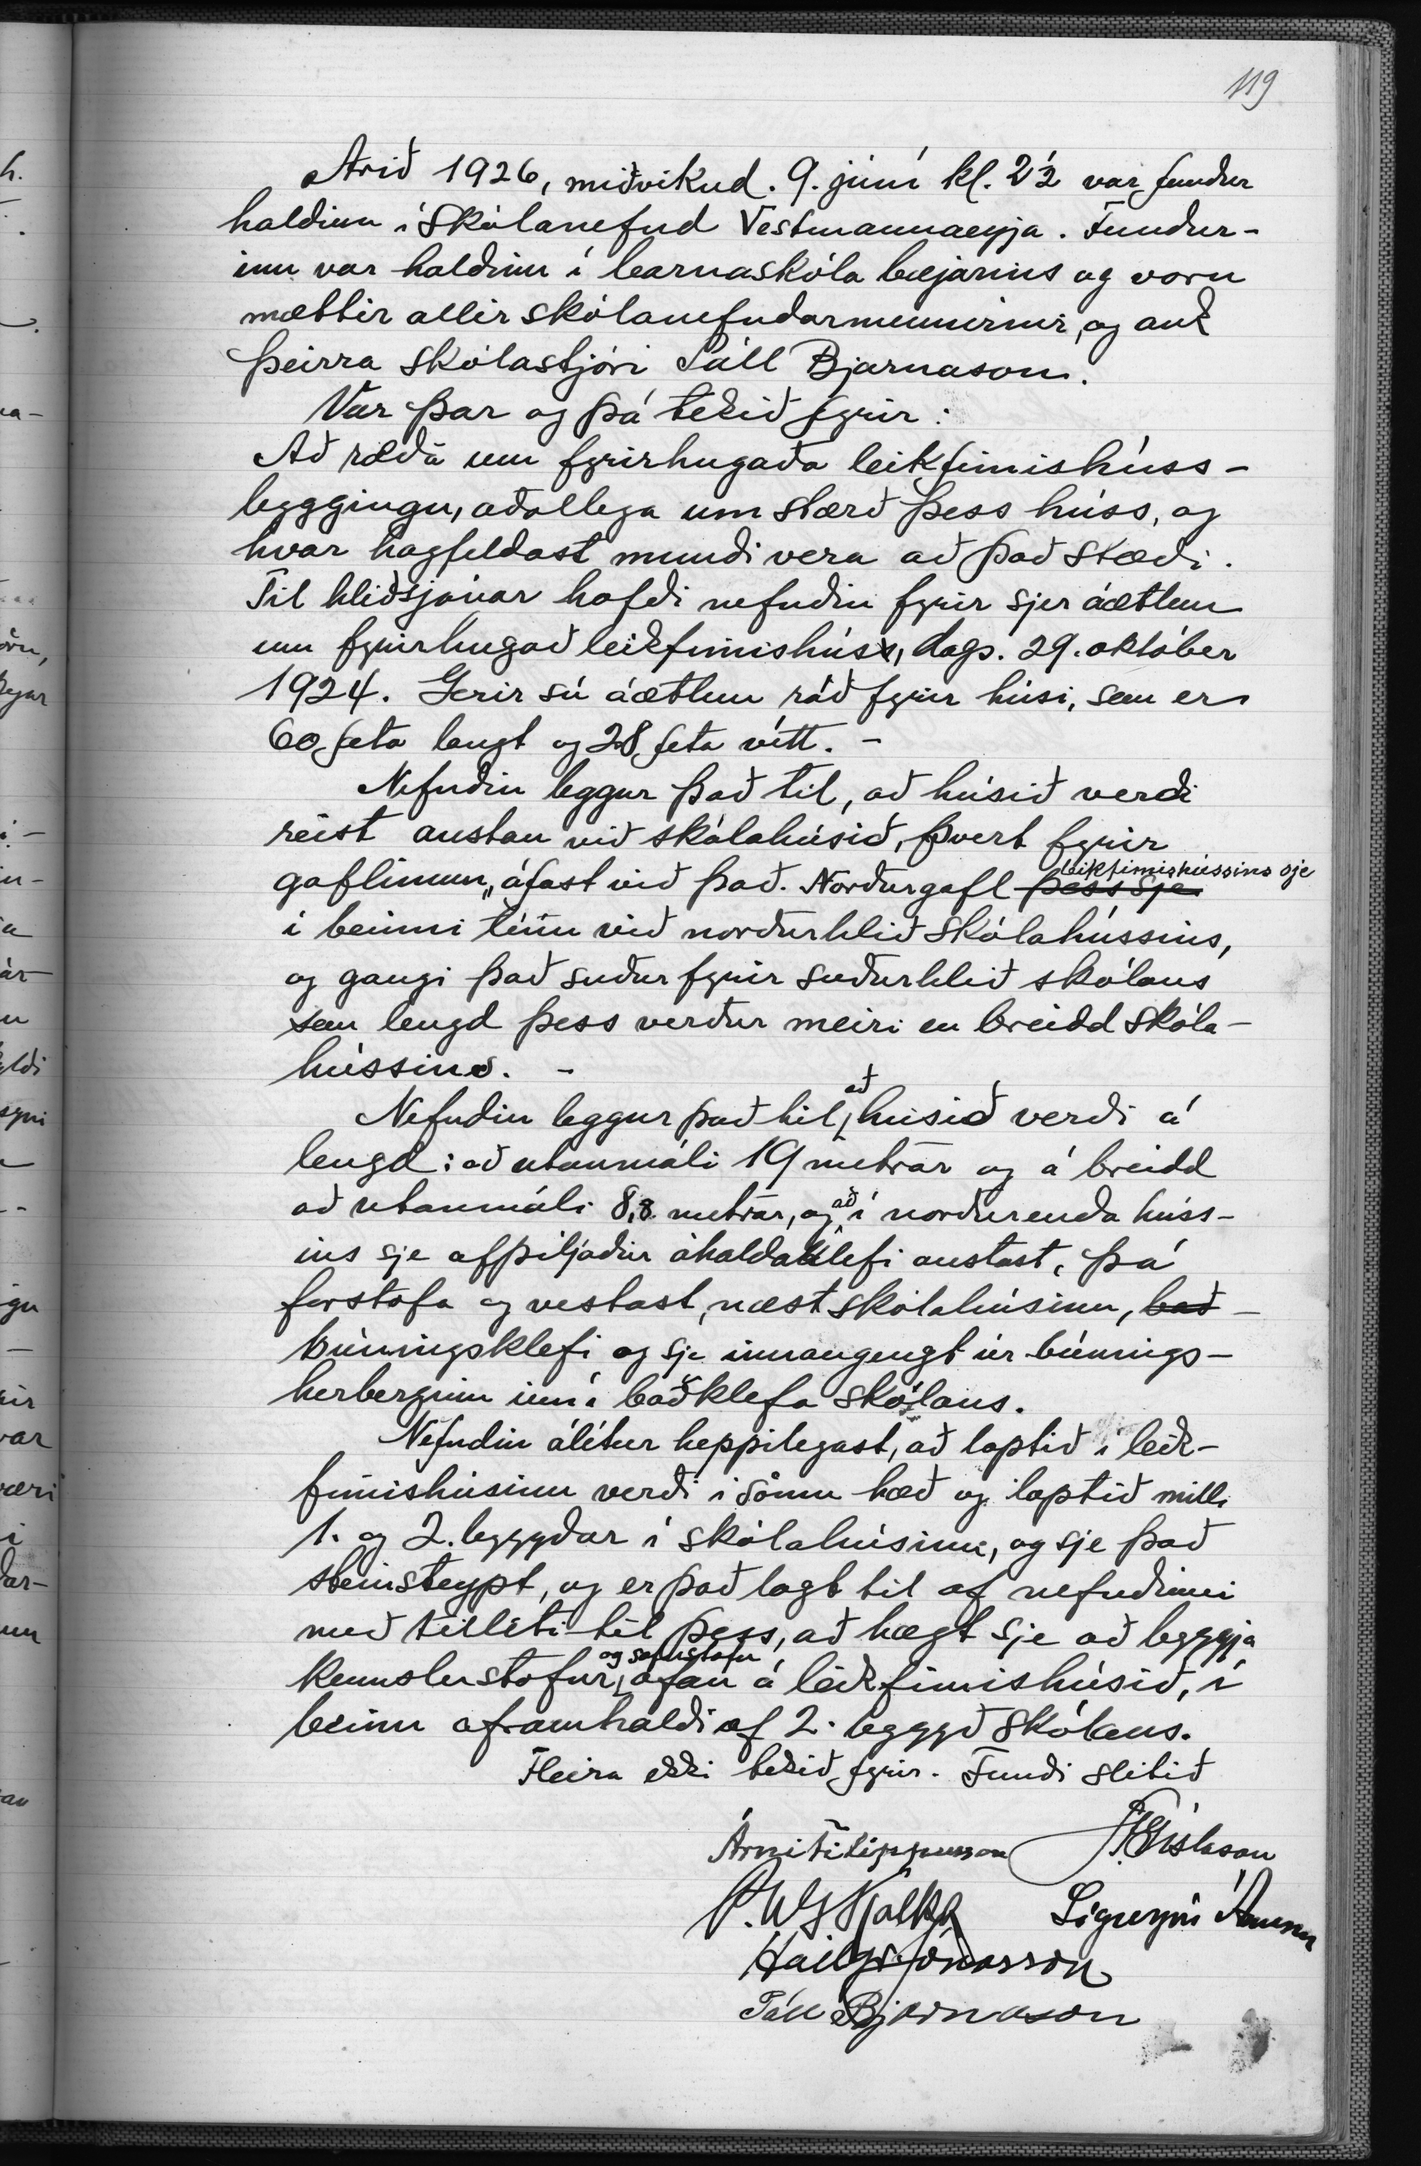 119
Árið 1926, miðvikud. 9. júní kl. 2½ var fundur
haldinn í skólanefnd Vestmannaeyja. Fundur-
inn var haldinn í barnaskóla bæjarins og voru
mættir allir skólanefndarmennirnir, og auk
þeirra skólastjóri Páll Bjarnason.
Var þar og þá tekið fyrir:
Að ræða um fyrirhugaða leikfimishúss-
byggingu, aðallega um stærð þess húss, og
hvar hagfeldast mundi vera að það stæði.
Til hliðsjónar hafði nefndin fyrir sjer áætlun
um fyrirhugað leikfimishús, dags. 29. október
1924. Gerir sú áætlun ráð fyrir húsi, sem er
60 feta langt og 28 feta vítt. -
Nefndin leggur það til, að húsið verði
reist austan við skólahúsið, þvert fyrir
gaflinum, áfast við það. Norðurgafl þess sje leikfimishússins sje
í beinni línu við norðurhlið skólahússins,
og gangi það suður fyrir suðurhlið skólans
sem lengd þess verður meiri en breidd skóla-
hússins. -
Nefndin leggur það til, að húsið verði á
lengd: að utanmáli 19 metrar og á breidd
að utanmáli 8,8 metrar, og að í norðurenda húss-
ins sje afþiljaður áhaldaklefi austast, þá
forstofa og vestast, næst skólahúsinu, bað-
búningsklefi og sje innangengt úr búnings-
herberginu inní baðklefa skólans.
Nefndin álítur heppilegast, að loptið í leik-
fimishúsinu verði í sömu hæð og loptið milli
1. og 2. byggðar í skólahúsinu, og sje það
steinsteypt, og er það lagt til af nefndinni
með tilliti til þess, að hægt sje að byggja
kennslustofur og safnstofu ofan á leikfimishúsið, í
beinu áframhaldi af 2. byggð skólans.
Fleira ekki tekið fyrir. Fundi slitið
Árni Filippusson J. Gíslason
P. V. G. Kolka Sigurjón Árnason
Hallgr. Jónasson
Páll Bjarnason